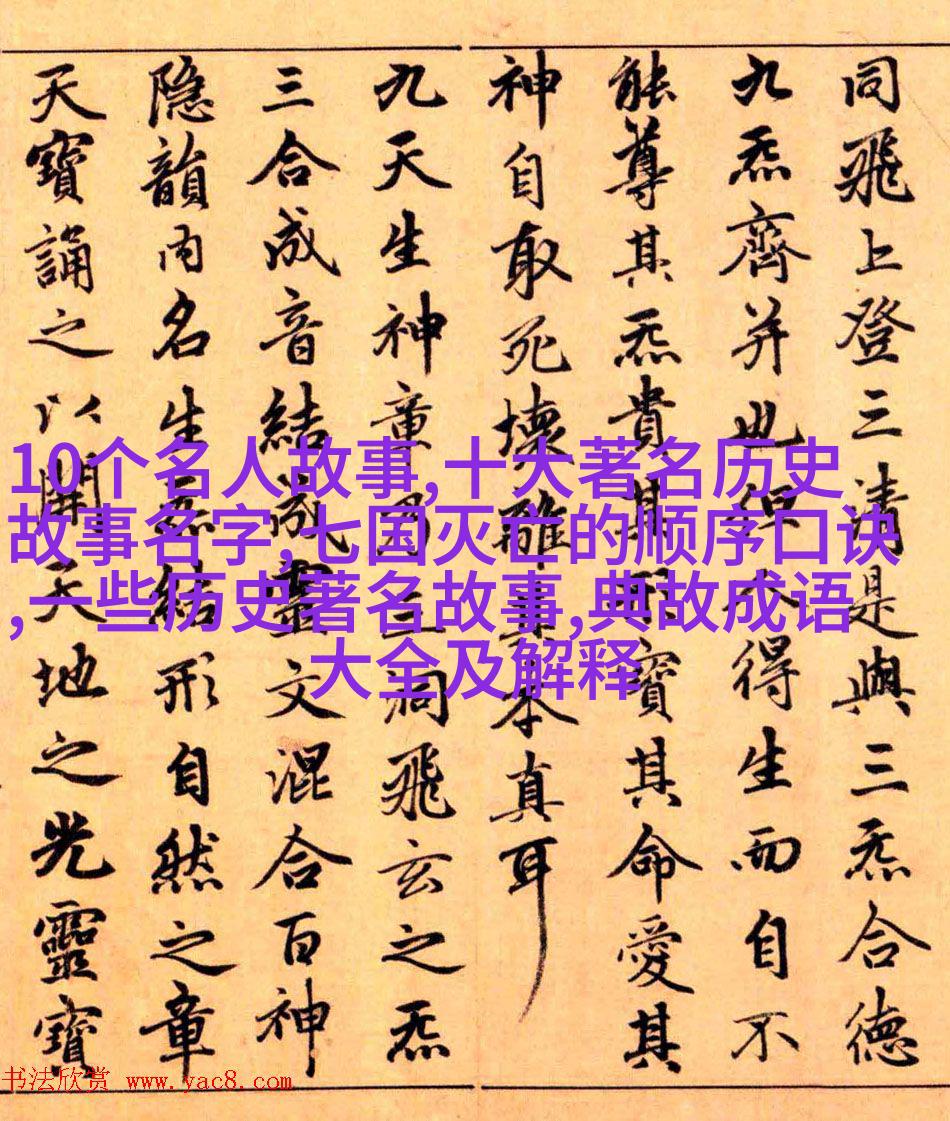 同飛上登三清是與三炁合德
九炁齊并也但人得生而自不
能尊其炁貴其形寶其命愛其
神自取死壞離其本真耳
九天生神章乃三洞飛玄之炁
三合成音結成靈文混合百神
隱韻內名生炁結形自然之章
天寶誦之以開天地之光靈寶
10个名人故事,十大著名历史
故事名字,七国灭亡的顺序口诀
,一些历史著名故事,典故成语
大全及解释
书法欣赏 www.yac8.com